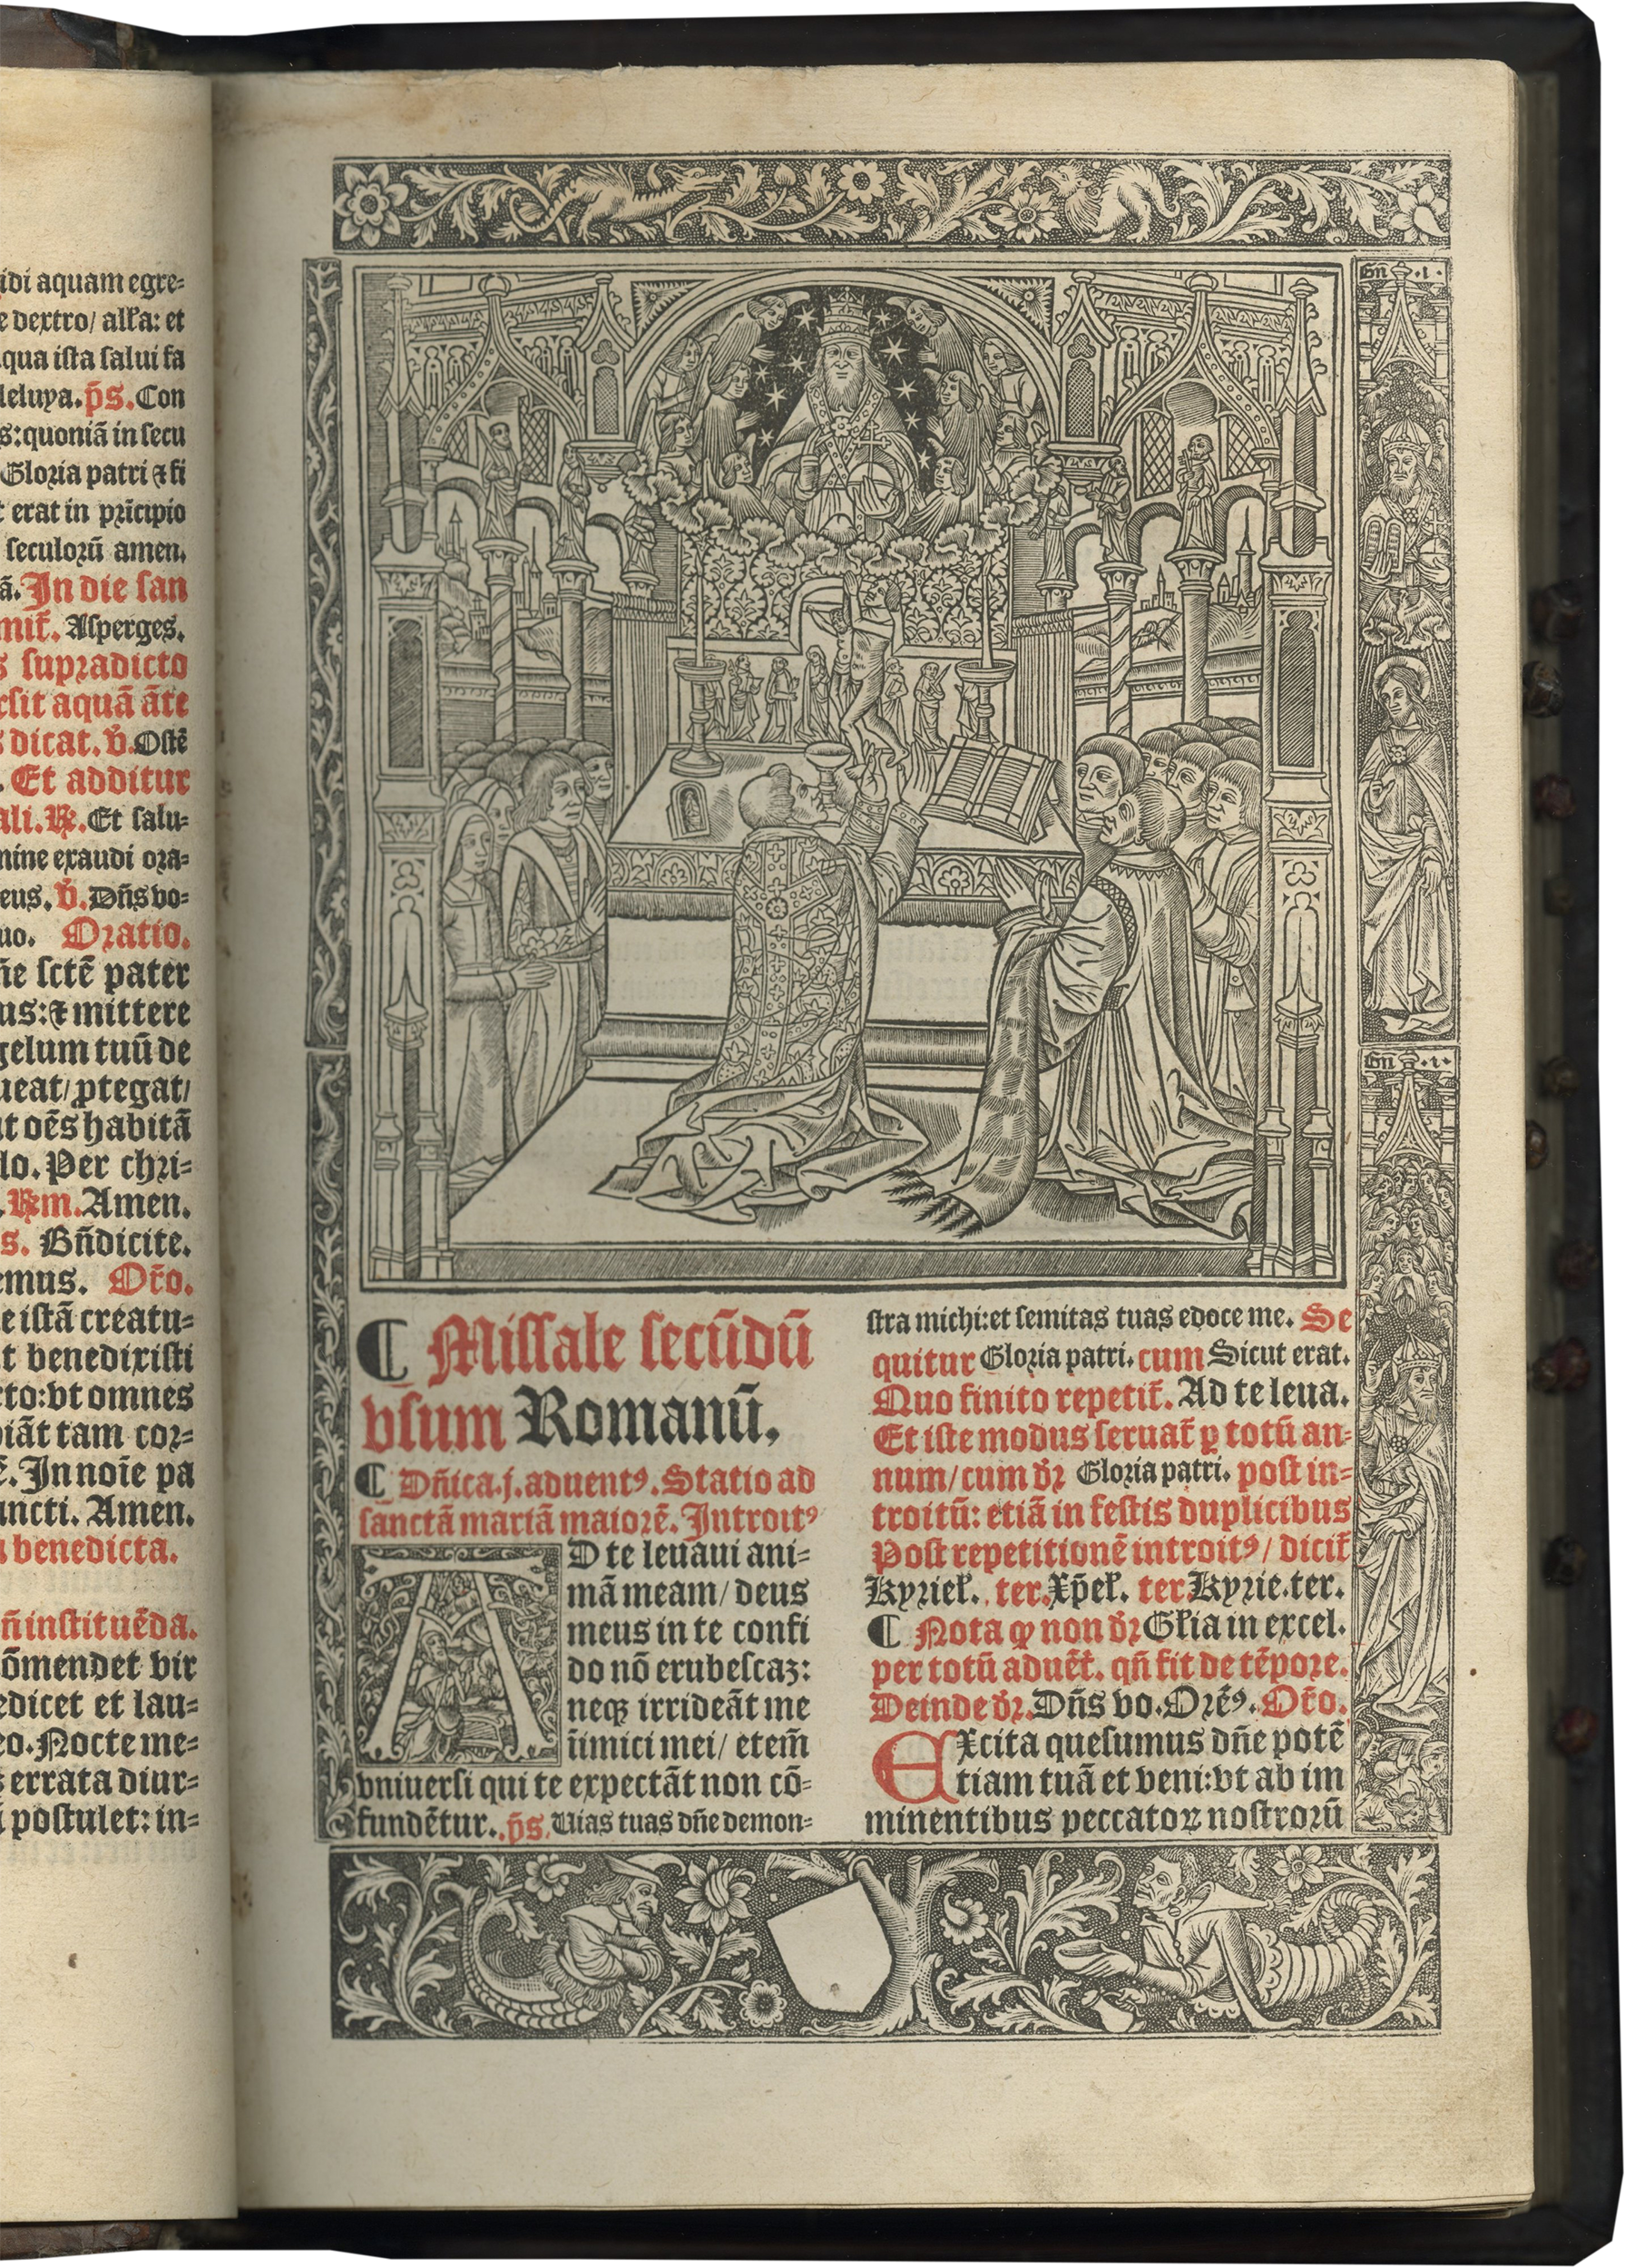 idi aquam egre⸗
e dextro/ alľa: et
qua ista salui fa
leluya. p̃s. Con
s: quoniã in secu
Gloria patri ⁊ fi
erat in prĩcipio
seculorũ amen.
ã. In die san
mit̃. Asperges.
s supradicto
rsit aquã ãte
s dicat. v̾. Ostẽ
. Et additur
ali. ℟. Et salu⸗
mine exaudi ora⸗
eus. v̾. Dñs vo⸗
uo. Oratio.
ñe sctẽ pater
us: ⁊ mittere
gelum tuũ de
ueat/ ꝓtegat/
t oẽs habitã
lo. Per chri⸗
. ℟m. Amen.
s. Bñdicite.
emus. Or̃o.
e istã creatu⸗
t benedixisti
cto: vt omnes
piãt tam cor⸗
ẽ. In noĩe pa
ancti. Amen.
a benedicta.
ñ instituẽda.
õmendet vir
edicet et lau⸗
eo. Nocte me⸗
s errata diur⸗
i postulet: in⸗
Gñ .i.
Gñ .i.
¶ Missale secũdũ
vsum Romanũ.
¶ Dñica .j. aduentꝰ. Statio ad
sanctã mariã maiorẽ. Introitꝰ
AD te leuaui ani⸗
mã meam/ deus
meus in te confi
do nõ erubescaꝫ:
neqꝫ irrideãt me
inimici mei/ etem̃
vniuersi qui te expectãt non cõ⸗
fundẽtur. p̃s. Uias tuas dñe demon⸗
stra michi: et semitas tuas edoce me. Se
quitur Gloria patri. cum Sicut erat.
Quo finito repetit̃. Ad te leua.
Et iste modus seruat̃ ꝑ totũ an⸗
num/ cum dr̃ Gloria patri. post in⸗
troitũ: etiã in festis duplicibus
Post repetitionẽ introitꝰ/ dicit̃
Kyrieľ. ter. Xp̃eľ. ter Kyrie. ter.
¶ Nota ꝙ non dr̃ Gľia in excel.
per totũ aduẽt̃. qñ fit de tẽpore.
Deinde dr̃. Dñs vo. Orẽꝰ. Or̃o.
EXcita quesumus dñe potẽ
tiam tuã et veni: vt ab im
minentibus peccatoꝝ nostrorũ